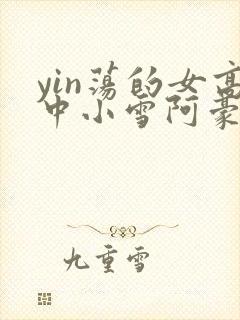 yin荡的女高
中小雪阿豪
九重雪